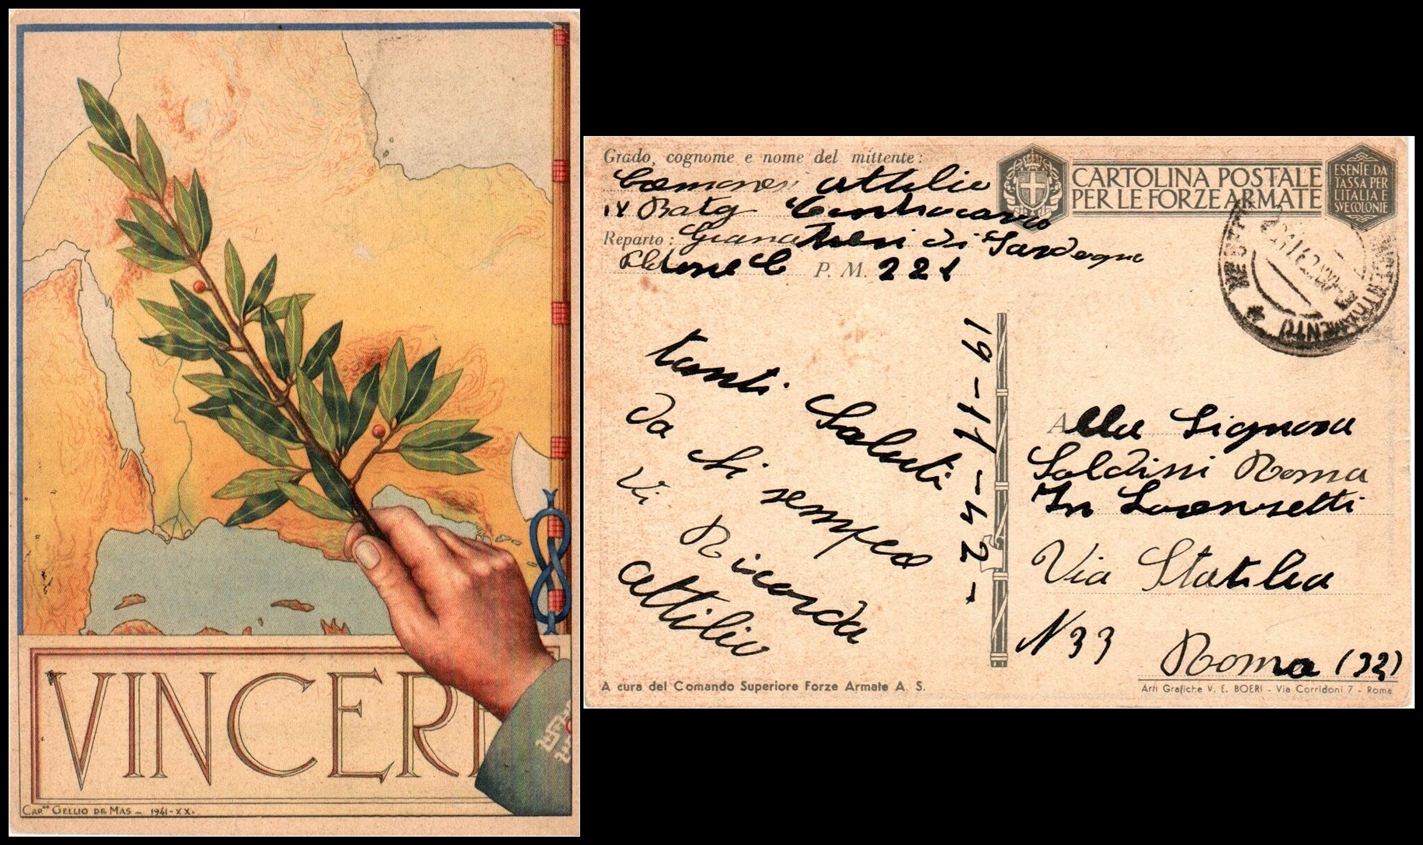 VINCERE
CAP.NO GELLIO DE MAS - 1941-XX.
Grado, cognome e nome del mittente:
attilio
IV Batg
Reparto: Granatieri di Sardegna
P. M. 221
CARTOLINA POSTALE
PER LE FORZE ARMATE
ESENTE DA
TASSA PER
L'ITALIA E
SVE COLONIE
CONCENTRAMENTO
19-11-42-
tanti Saluti
da chi sempre
Vi Ricorda
attilio
Alla Signora
Soldini Roma
In Lorensetti
Via Statilia
N 33
Roma (32)
A cura del Comando Superiore Forze Armate A. S.
Arti Grafiche V. E. BOERI - Via Corridoni 7 - Roma